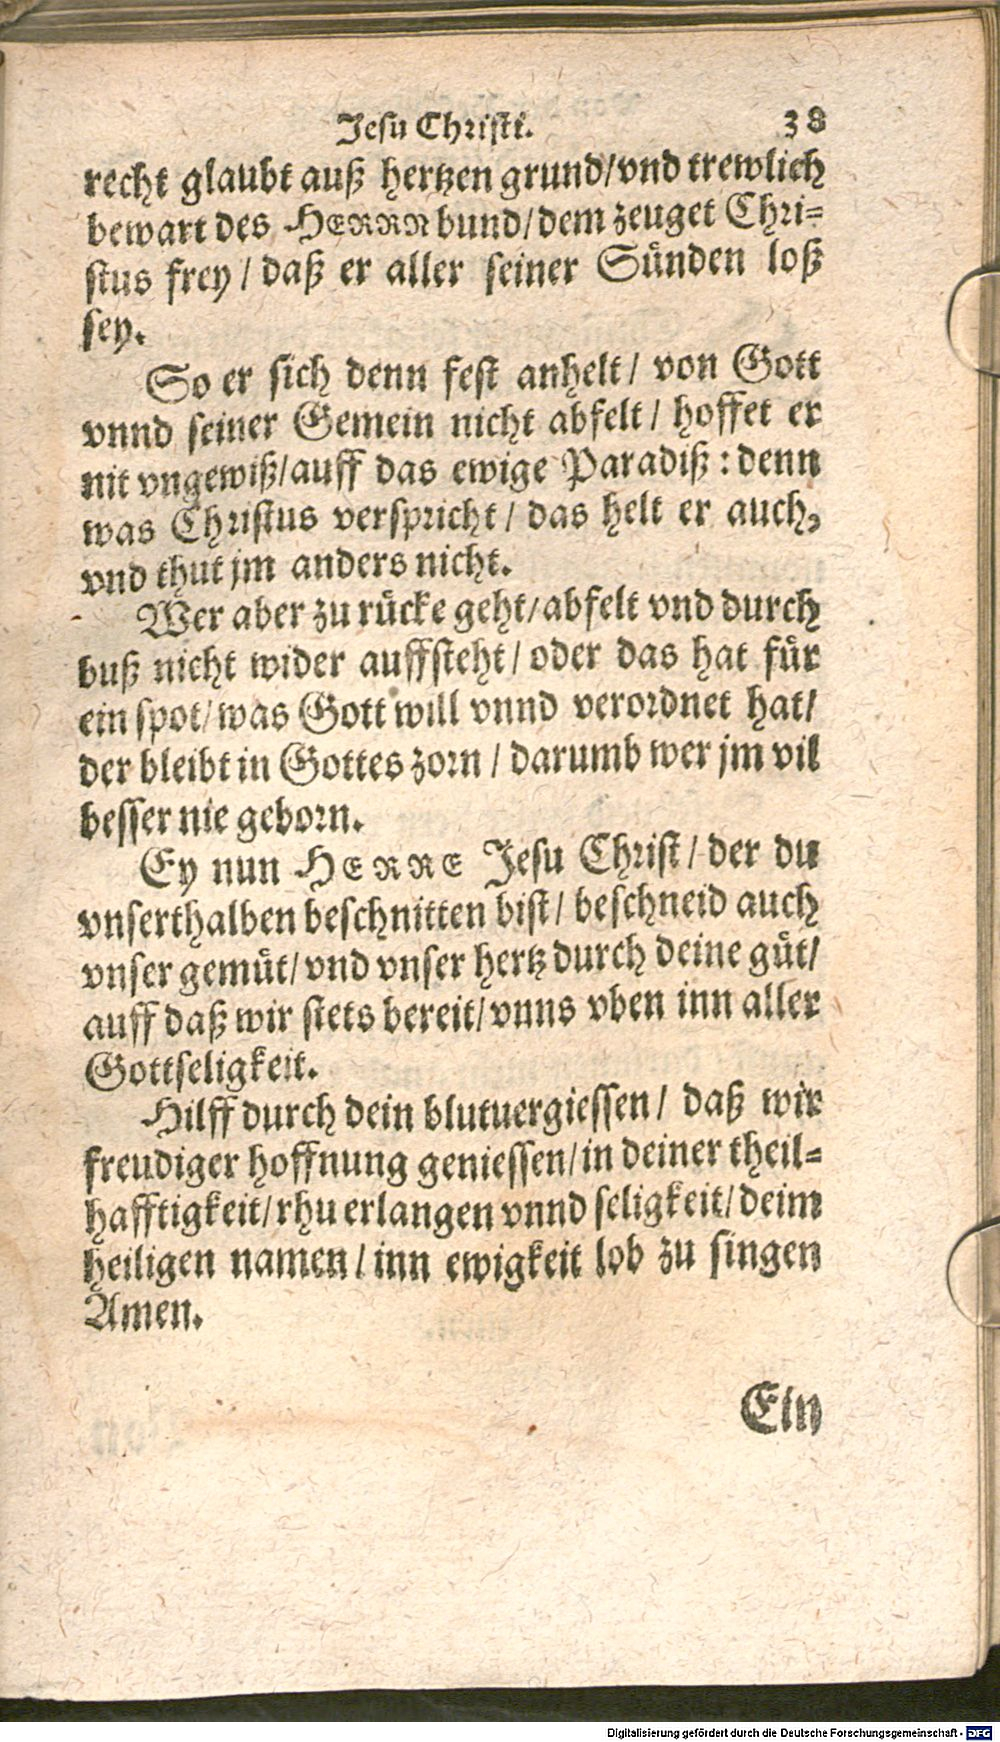 Jesu Christi. 38
recht glaubt auß hertzen grund/vnd trewlich
bewart des HERRN bund/dem zeuget Chri-
stus frey/ daß er aller seiner Sünden loß
sey.
So er sich denn fest anhelt/ von Gott
vnnd seiner Gemein nicht abfelt/ hoffet er
nit vngewiß/auff das ewige Paradiß: denn
was Christus verspricht/ das helt er auch,
vnd thut jm anders nicht.
Wer aber zu rücke geht/abfelt vnd durch
buß nicht wider auffsteht/ oder das hat für
ein spot/was Gott will vnnd verordnet hat/
der bleibt in Gottes zorn/ darumb wer jm vil
besser nie geborn.
Ey nun HERRE Jesu Christ/ der du
vnserthalben beschnitten bist/ beschneid auch
vnser gemüt/ vnd vnser hertz durch deine güt/
auff daß wir stets bereit/ vnns vben inn aller
Gottseligkeit.
Hilff durch dein blutuergiessen/ daß wir
freudiger hoffnung geniessen/in deiner theil-
hafftigkeit/rhu erlangen vnnd seligkeit/deim
heiligen namen/ inn ewigkeit lob zu singen
Amen.
Ein
Digitalisierung gefördert durch die Deutsche Forschungsgemeinschaft - DFG